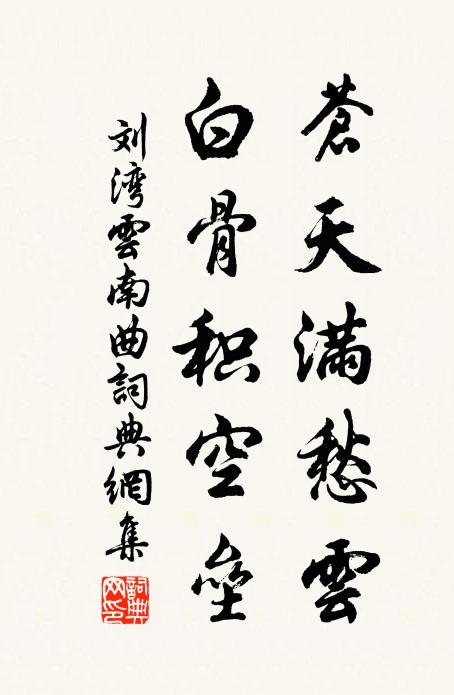 蒼天滿愁雲
白骨积空壘
刘湾雲南曲詞典網集
詞典網印